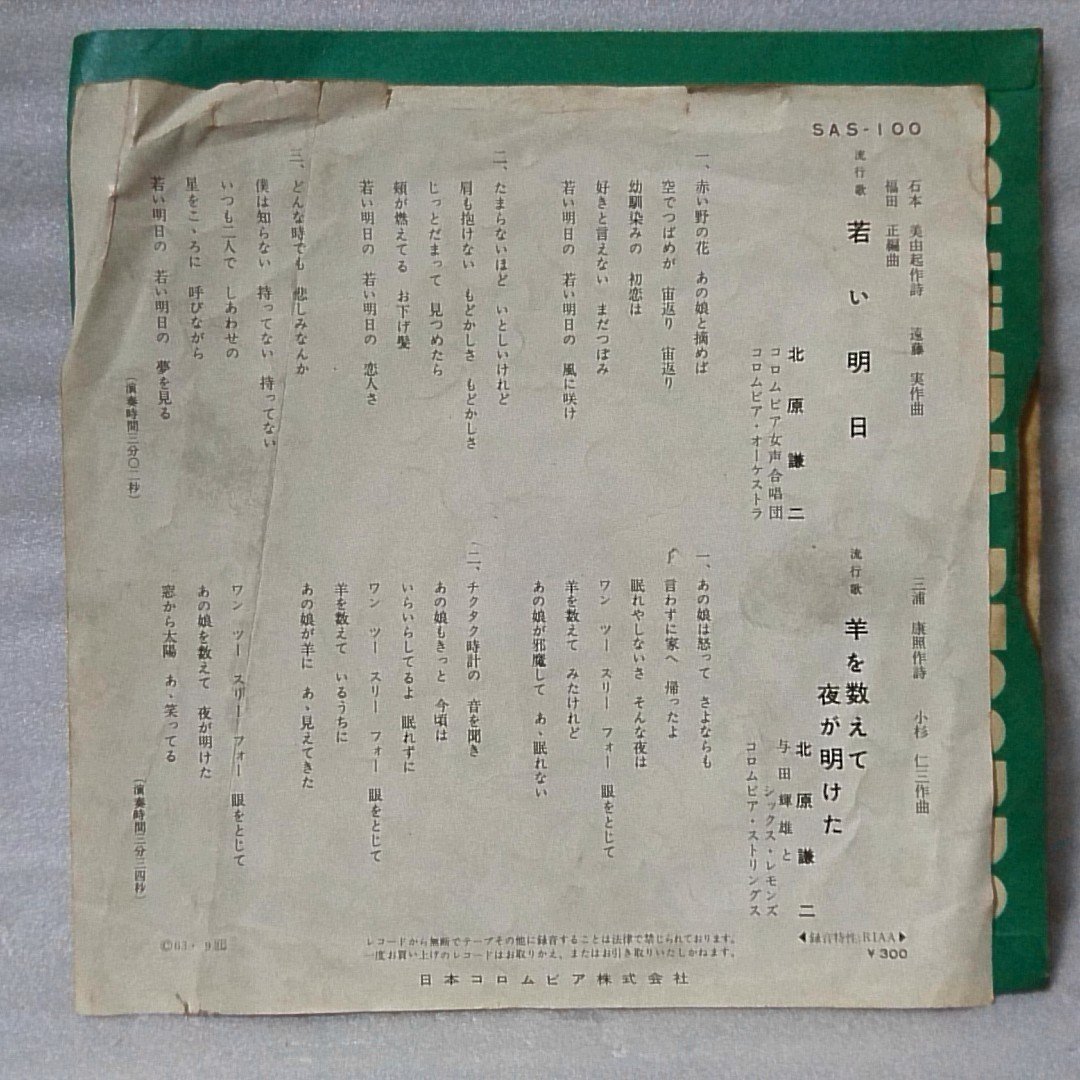 SAS-100
石本 美由起作詩 遠藤 実作曲
福田 正編曲
流行歌 若い明日
北原謙二
コロムビア女声合唱団
コロムビア・オーケストラ
一、赤い野の花 あの娘と摘めば
空でつばめが 宙返り 宙返り
幼馴染みの 初恋は
好きと言えない まだつぼみ
若い明日の 若い明日の 風に咲け
二、たまらないほど いとしいけれど
肩も抱けない もどかしさ もどかしさ
じっとだまって 見つめたら
頬が燃えてる お下げ髪
若い明日の 若い明日の 恋人さ
三、どんな時でも 悲しみなんか
僕は知らない 持ってない 持ってない
いつも二人で しあわせの
星をこゝろに 呼びながら
若い明日の 若い明日の 夢を見る
(演奏時間三分〇二秒)
三浦 康照作詩 小杉 仁三作曲
流行歌 羊を数えて
夜が明けた
北原謙二
与田輝雄と
シックス・レモンズ
コロムビア・ストリングス
一、あの娘は怒って さよならも
言わずに家へ 帰ったよ
眠れやしないさ そんな夜は
ワン ツー スリー フォー 眼をとじて
羊を数えて みたけれど
あの娘が邪魔して あゝ眠れない
二、チクタク時計の 音を聞き
あの娘もきっと 今頃は
いらいらしてるよ 眠れずに
ワン ツー スリー フォー 眼をとじて
羊を数えて いるうちに
あの娘が羊に あゝ見えてきた
ワン ツー スリー フォー 眼をとじて
あの娘を数えて 夜が明けた
窓から太陽 あゝ笑ってる
(演奏時間三分三四秒)
◀録音特性:RIAA▶
¥300
レコードから無断でテープその他に録音することは法律で禁じられております。
一度お買い上げのレコードはお取りかえ、またはお引き取りいたしかねます。
日本コロムビア株式会社
©63・9